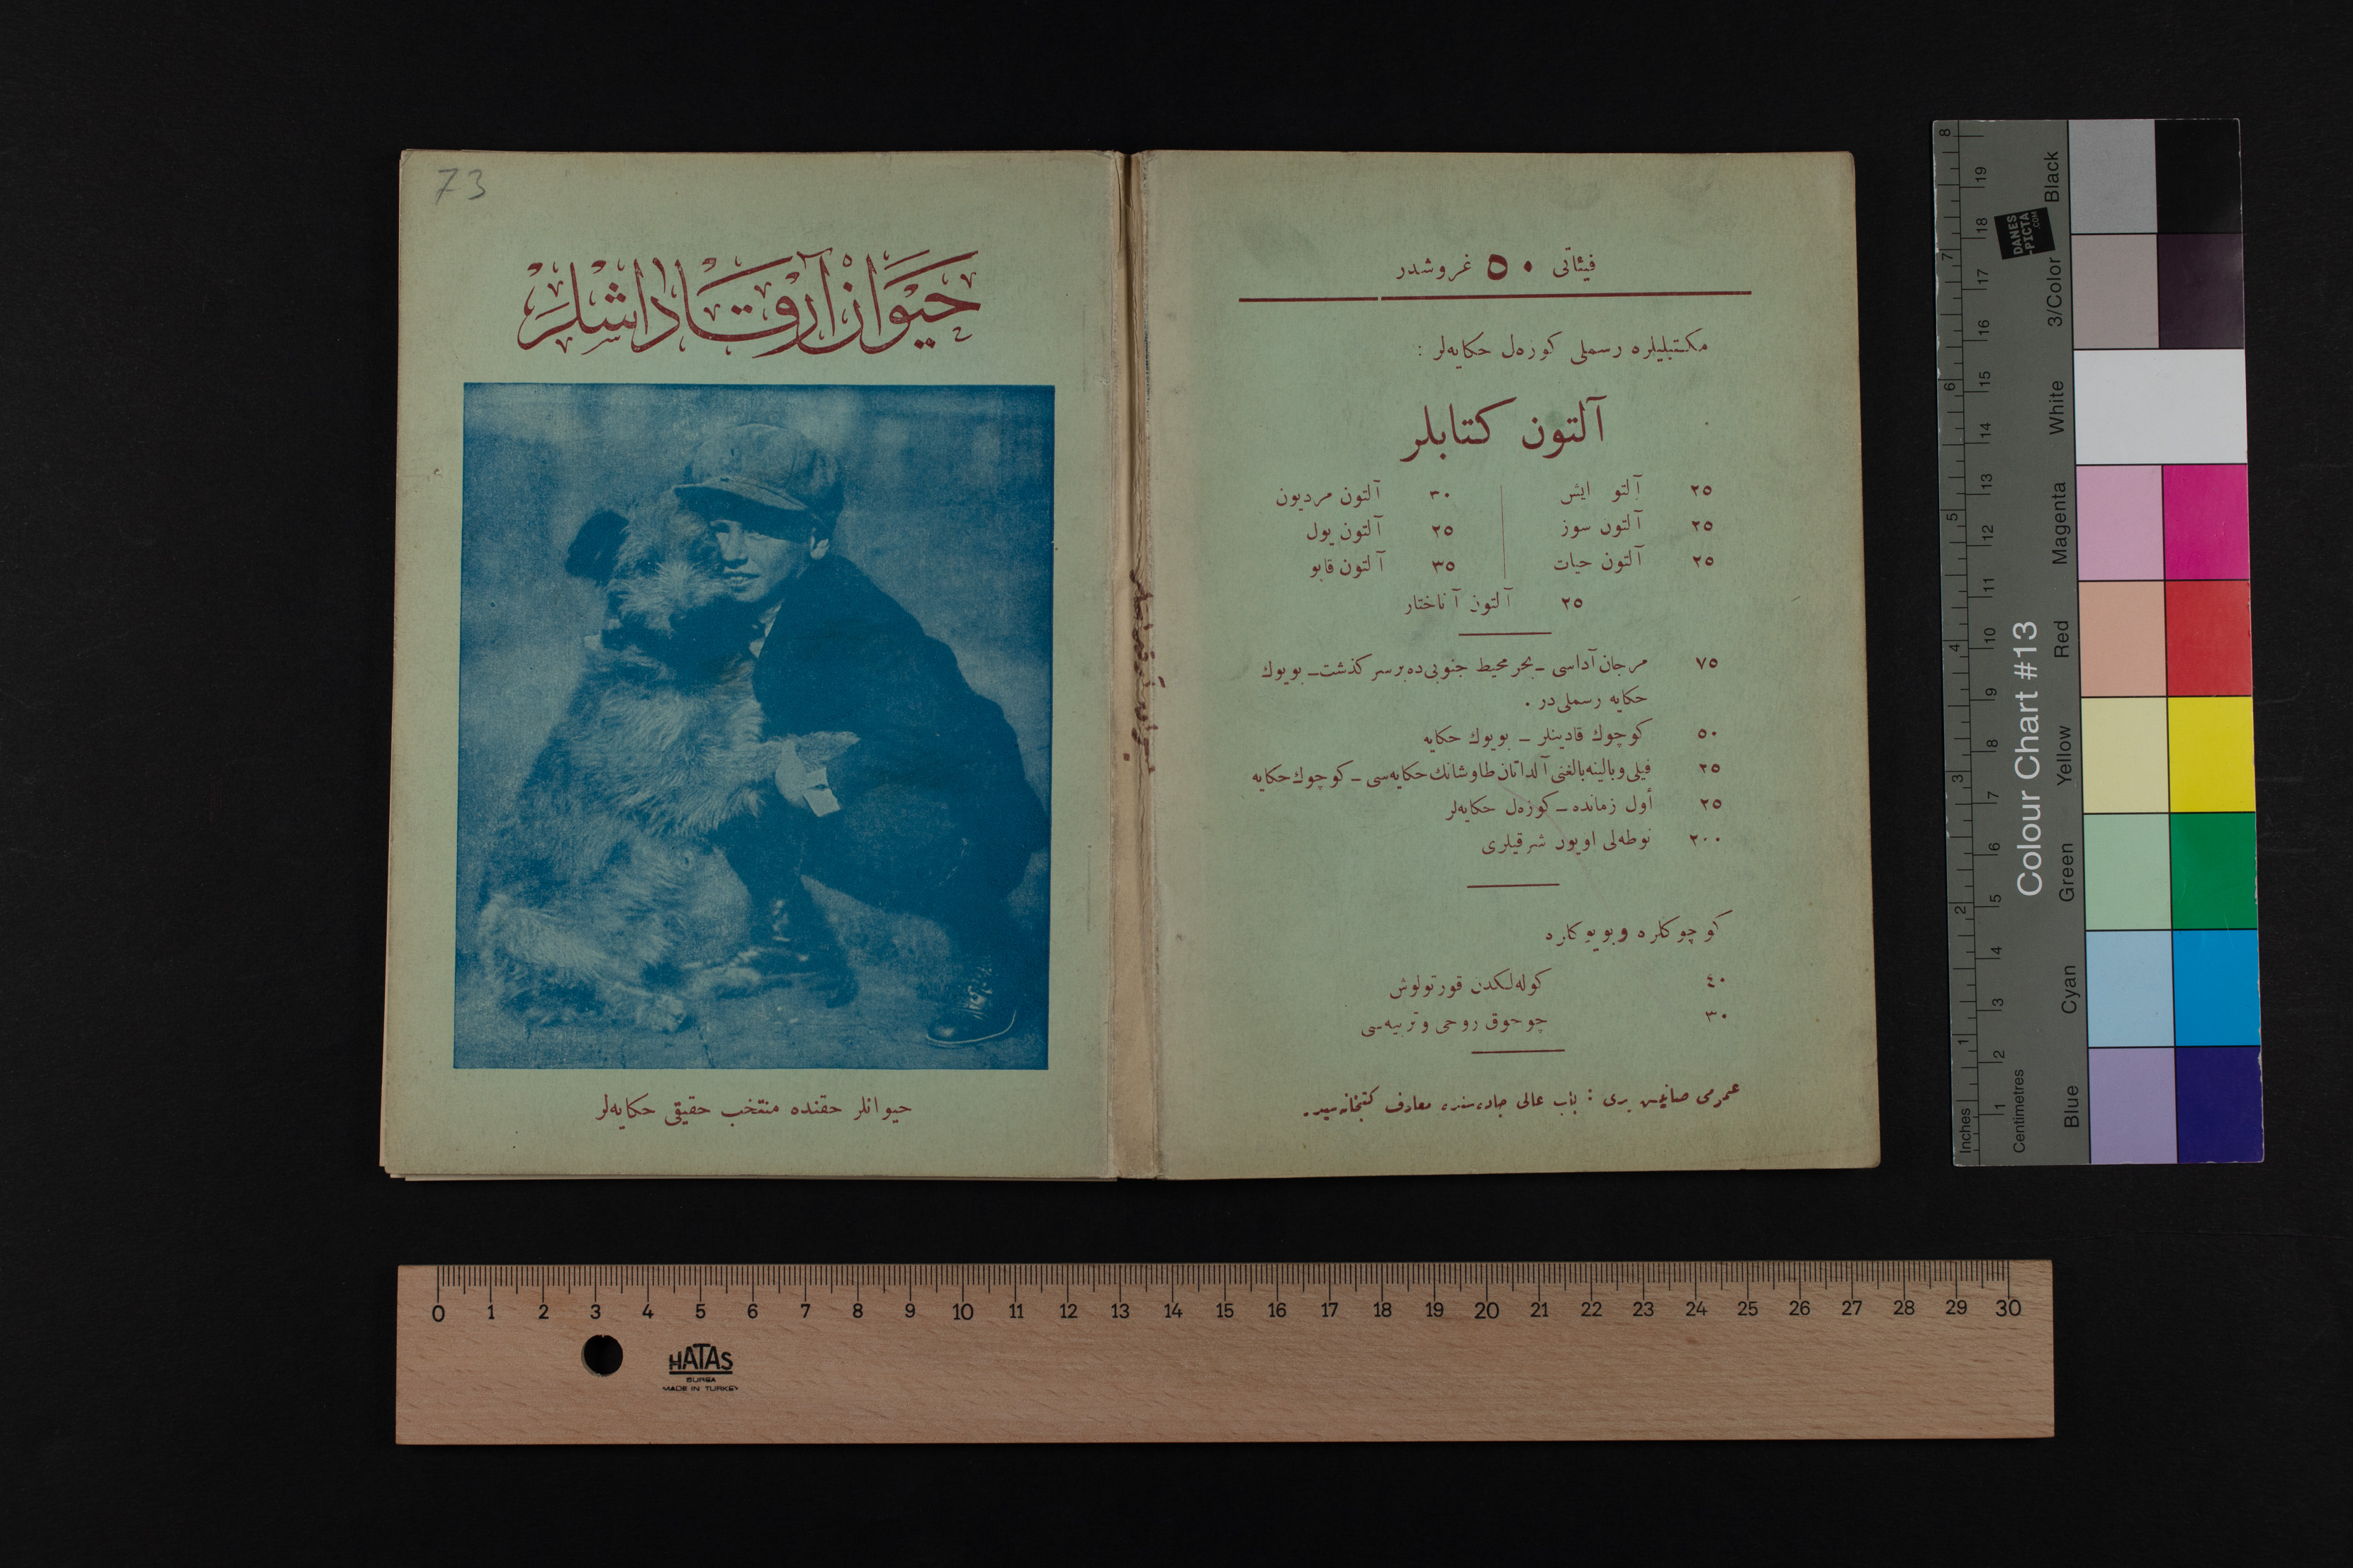 73
حیوان آرقاداشلر
حیوانلر حقنده منتخب حقیقی حکایه‌لر
فیئاتی ٥٠ غروشدر
مکتبلیلره رسملی کوزه‌ل حکایه‌لر :
آلتون کتابلر
٢٥ آلتو ایش
٢٥ آلتون سوز
٢٥ آلتون حیات
٣٠ آلتون مردیون
٢٥ آلتون یول
٣٥ آلتون قاپو
٢٥ آلتون آناختار
٧٥ مرجان آداسی ـ بحر محیط جنوبی‌ده بر سر کذشت ـ بویوك
حکایه رسملی‌در .
٥٠ کوچوك قادینلر ـ بویوك حکایه
٢٥ فیلی و بالینه بالغنی آلداتان طاوشانك حکایه‌سی ـ کوچوك حکایه
٢٥ أول زمانده ـ کوزه‌ل حکایه‌لر
٢٠٠ نوطه‌لی اویون شرقیلری
کوچوکلره و بویوکلره
٤٠ کوله‌لکدن قورتولوش
٣٠ چوجوق روحی و تربیه‌سی
عمومی صاتیش یری : باب عالی جاده‌سنده معارف کتبخانه‌سیدر .
8 7 6 5 4 3 2 1 Inches
19 18 17 16 15 14 13 12 11 10 9 8 7 6 5 4 3 2 1 Centimetres
DANES
-PICTA
.COM
Colour Chart #13
Black
3/Color
White
Magenta
Red
Yellow
Green
Cyan
Blue
0 1 2 3 4 5 6 7 8 9 10 11 12 13 14 15 16 17 18 19 20 21 22 23 24 25 26 27 28 29 30
HATAS
BURSA
MADE IN TURKEY